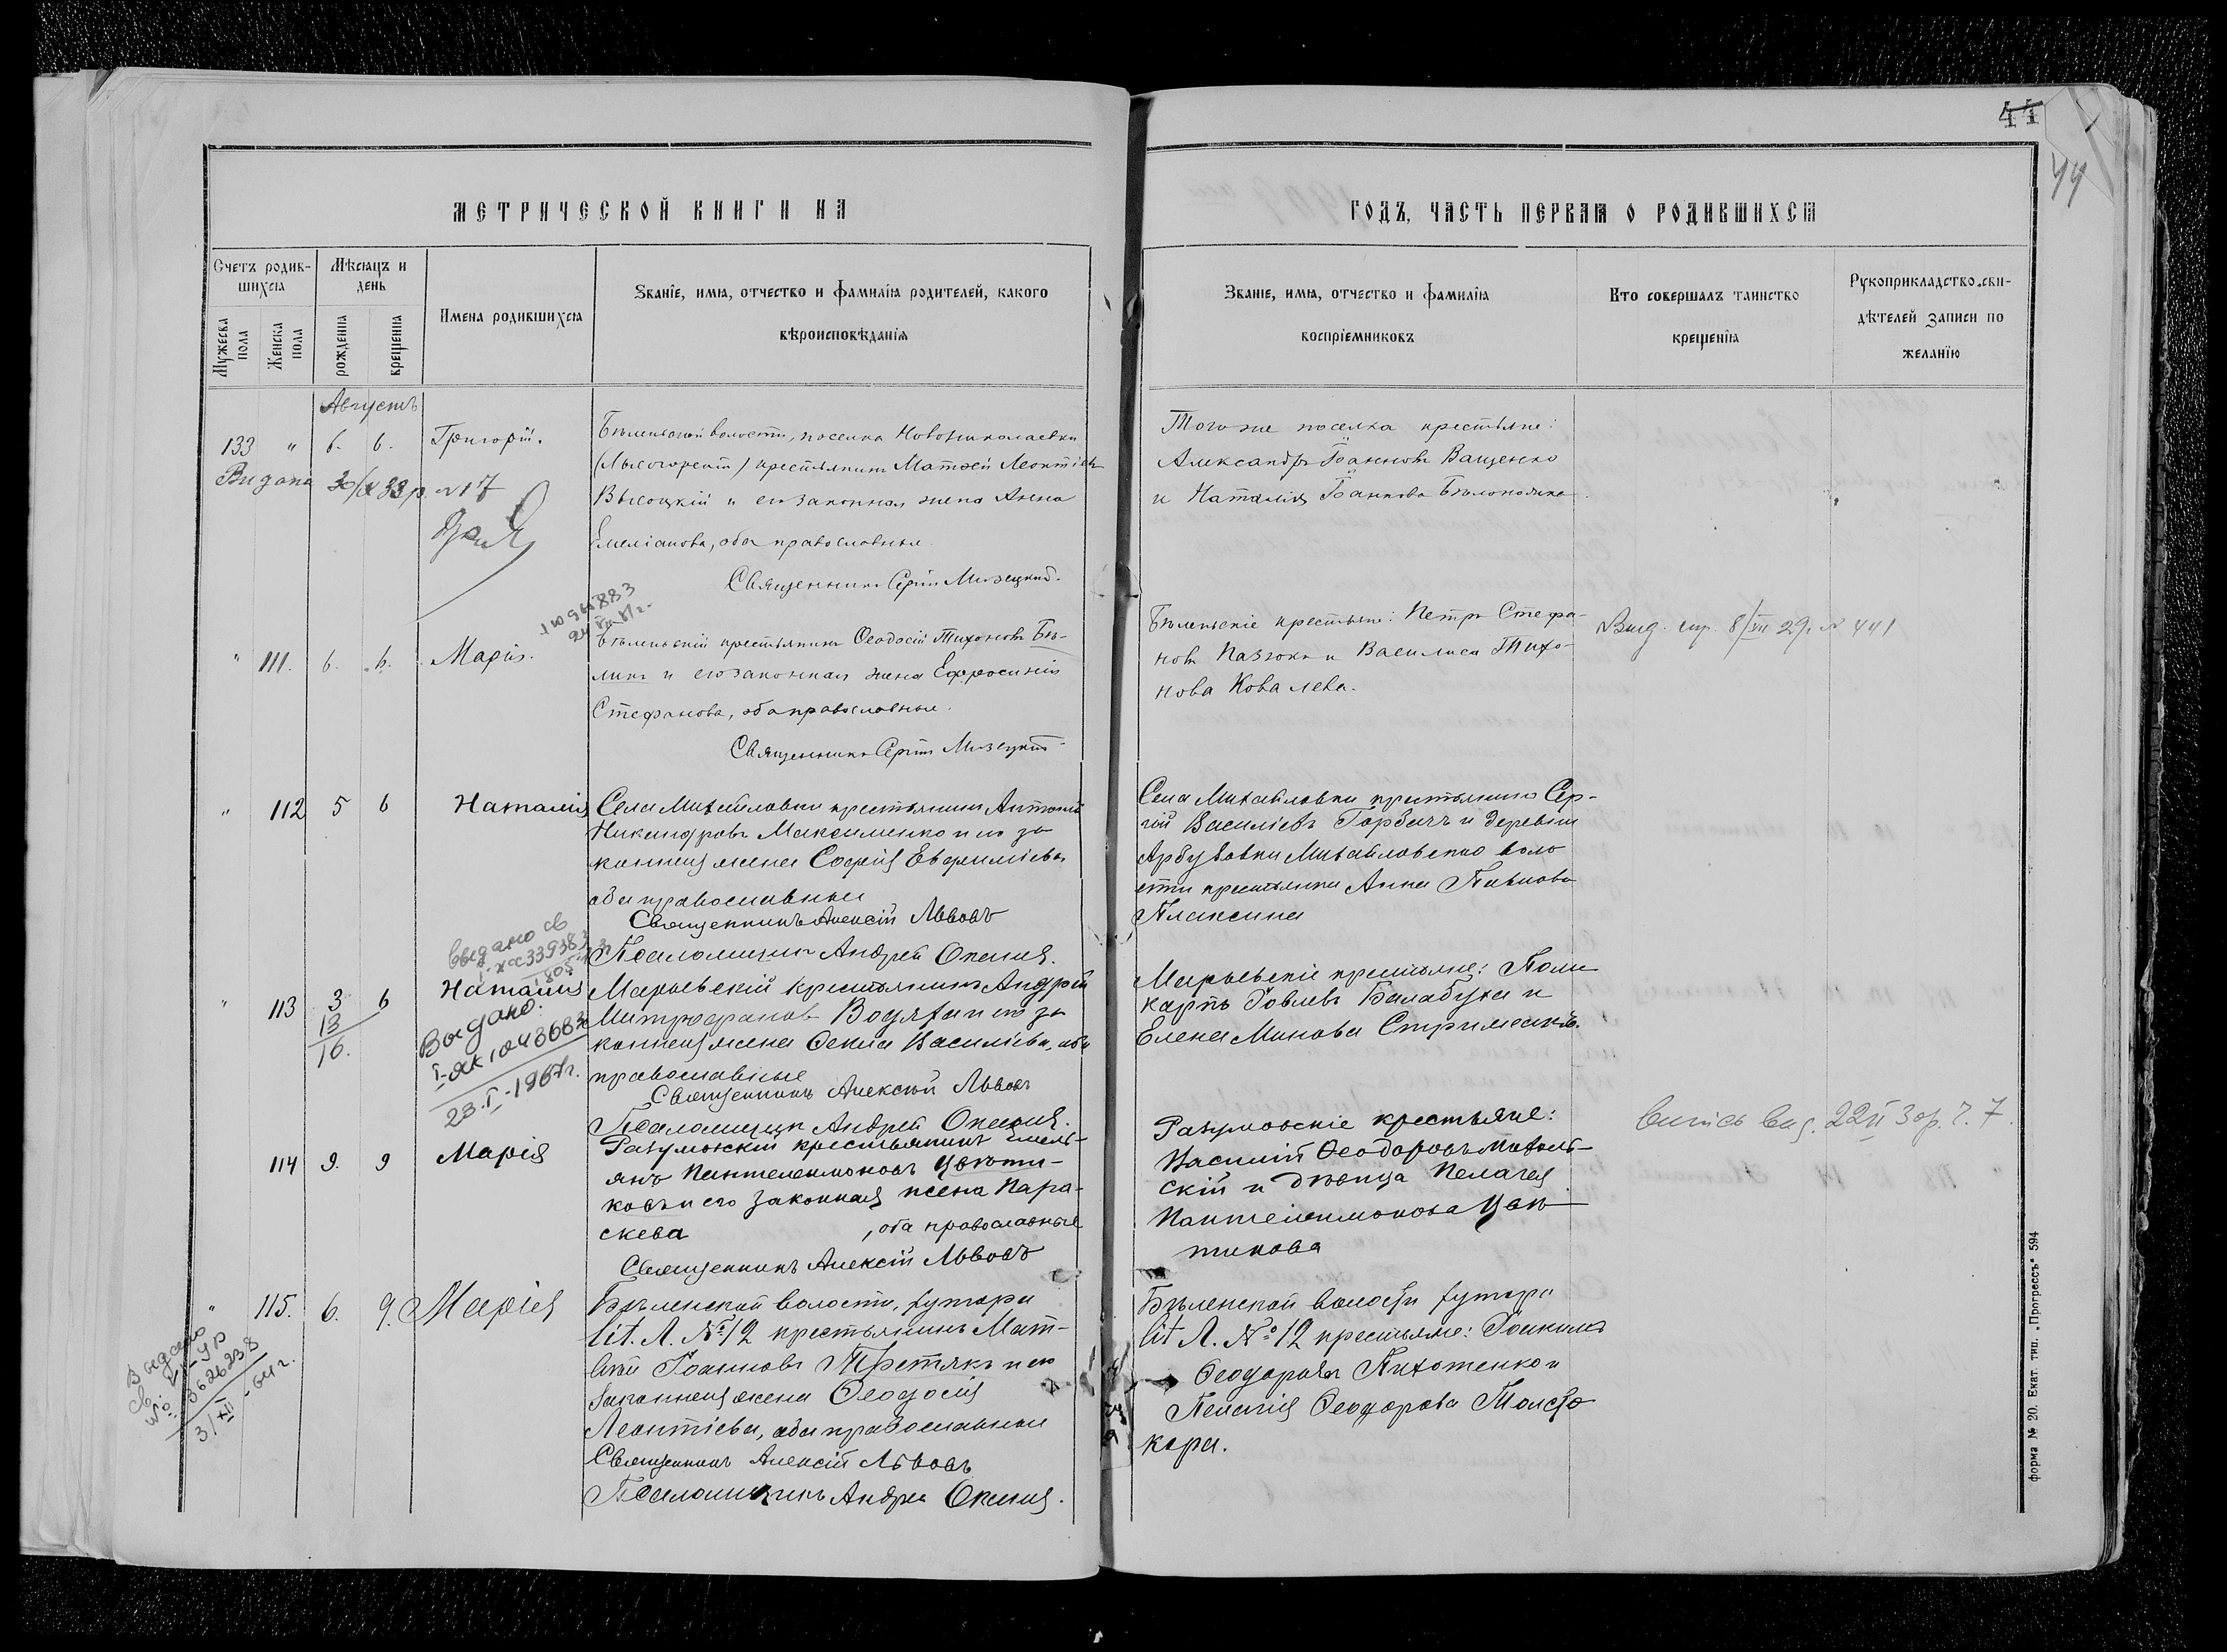 44
44
МЕТРИЧЕСКОЙ КНИГИ НА
ГОДЪ, ЧАСТЬ ПЕРВАЯ О РОДИВШИХСЯ
Счетъ родив-
шихся
Мужеска
пола
Женска
пола
Мѣсяцъ и
день
рожденія
крещенія
Имена родившихся
Званіе, имя, отчество и фамилія родителей, какого
вѣроисповѣданія
Званіе, имя, отчество и фамилія
воспріемниковъ
Кто совершалъ таинство
крещенія
Рукоприкладство сви-
дѣтелей записи по
желанію
Августъ
133 " 6. 6. Григорій.
Бѣленькой волости, поселка Новониколаевки
(Лысогорскій) крестьянинъ Матѳей Леонтіевъ
Высоцкій и его законная жена Анна
Емеліанова, оба православные.
Священникъ Сергій Мизецкій.
Того же поселка крестьяне:
Александръ Іоанновъ Ващенко
и Наталія Іоаннова
Видана 30/X 33 р. №17
" 111. 6. 6. Марія.
Бѣленьскій крестьянинъ Ѳеодосій Тихоновъ Бѣ-
ликъ и его законная жена Ефросинія
Стефанова, оба православные.
Священникъ Сергій Мизецкій
Бѣленьскіе крестьяне: Петръ Стефа-
новъ и Василиса Тихо-
нова Ковалева.
Выд. 8/VII 29. № 441
" 112 5 6 Наталія
Села Михайловки крестьянинъ Антоній
Никандровъ Максименко и его за
конная жена Софія Евфиміева
оба православные
Священникъ Алексій Львовъ
Псаломщикъ Андрей
Села Михайловки крестьянинъ Сер-
гій Василіевъ Горбачъ и деревни
Арбузовки Михайловской воло
сти крестьянка Анна
Плаксина
Выдано св
" 113 3 6 Наталія
13
16.
Выдано
I-ЯК 1043683
23.I-1967г.
Марьевскій крестьянинъ Андрей
Митрофановъ и его за
конная жена Ѳекла Василіева, оба
православные
Священникъ Алексій Львовъ
Псаломщикъ Андрей
Марьевскіе крестьяне: Поли
карпъ Іовлевъ Балабуха и
Елена Минова
114 9. 9 Марія
Разумовскій крестьянинъ Емель-
янъ Пантелеимоновъ Цвѣти-
ковъ и его законная жена Пара-
скева , оба православные
Священникъ Алексій Львовъ
Разумовскіе крестьяне:
Василій Ѳеодоровъ
скій и дѣвица Пелагея
Пантелеимонова Цвѣ
тикова
випись вид. 22 II 30р. Ч. 7.
" 115. 6. 9. Марія
Бѣленской волости, хутора
lit. Л. № 12 крестьянинъ Мат-
вѣй Іоанновъ Третякъ и его
законная жена Ѳеодосія
Леонтіева, оба православные
Священникъ Алексій Львовъ
Псаломщикъ Андрей
Бѣленской волости хутора
lit Л. № 12 крестьяне: Іоакимъ
Ѳеодоровъ Пихотенко и
Пелагія Ѳеодорова Толсто
кора.
Выдано
св II-УР
№ 3626238
3/XII-64г.
форма № 20. Екат. тип. „Прогрессъ" 594